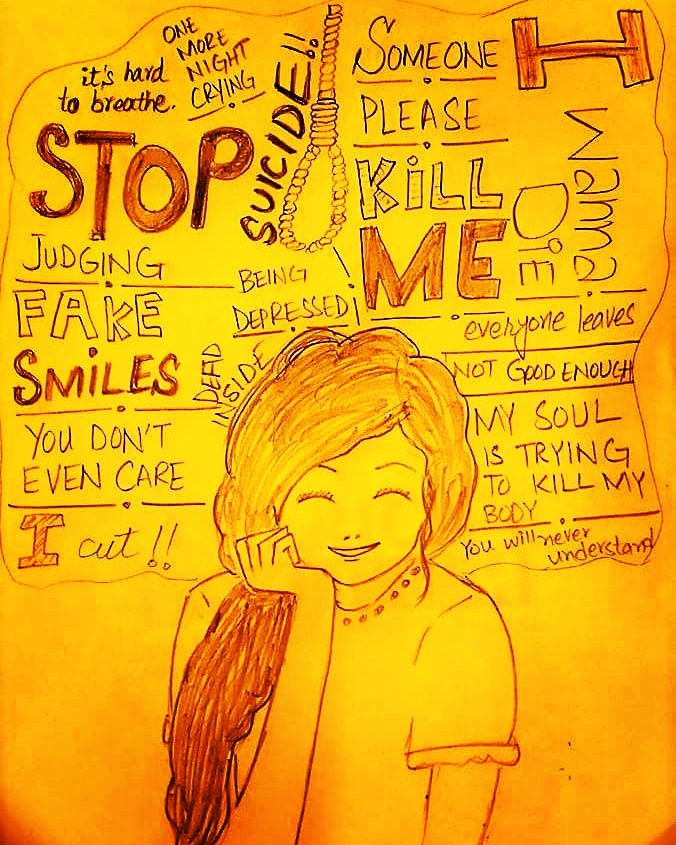 it's hard
to breathe.
ONE
MORE
NIGHT
CRYING
STOP
SUICIDE!!
JUDGING
FAKE
SMILES
YOU DON'T
EVEN CARE
I cut !!
BEING
DEPRESSED
DEAD
INSIDE
SOMEONE
PLEASE
KiLL
ME
I
wanna
DiE
everyone leaves
NOT GOOD ENOUGH
MY SOUL
IS TRYING
TO KILL MY
BODY
You will never
understand